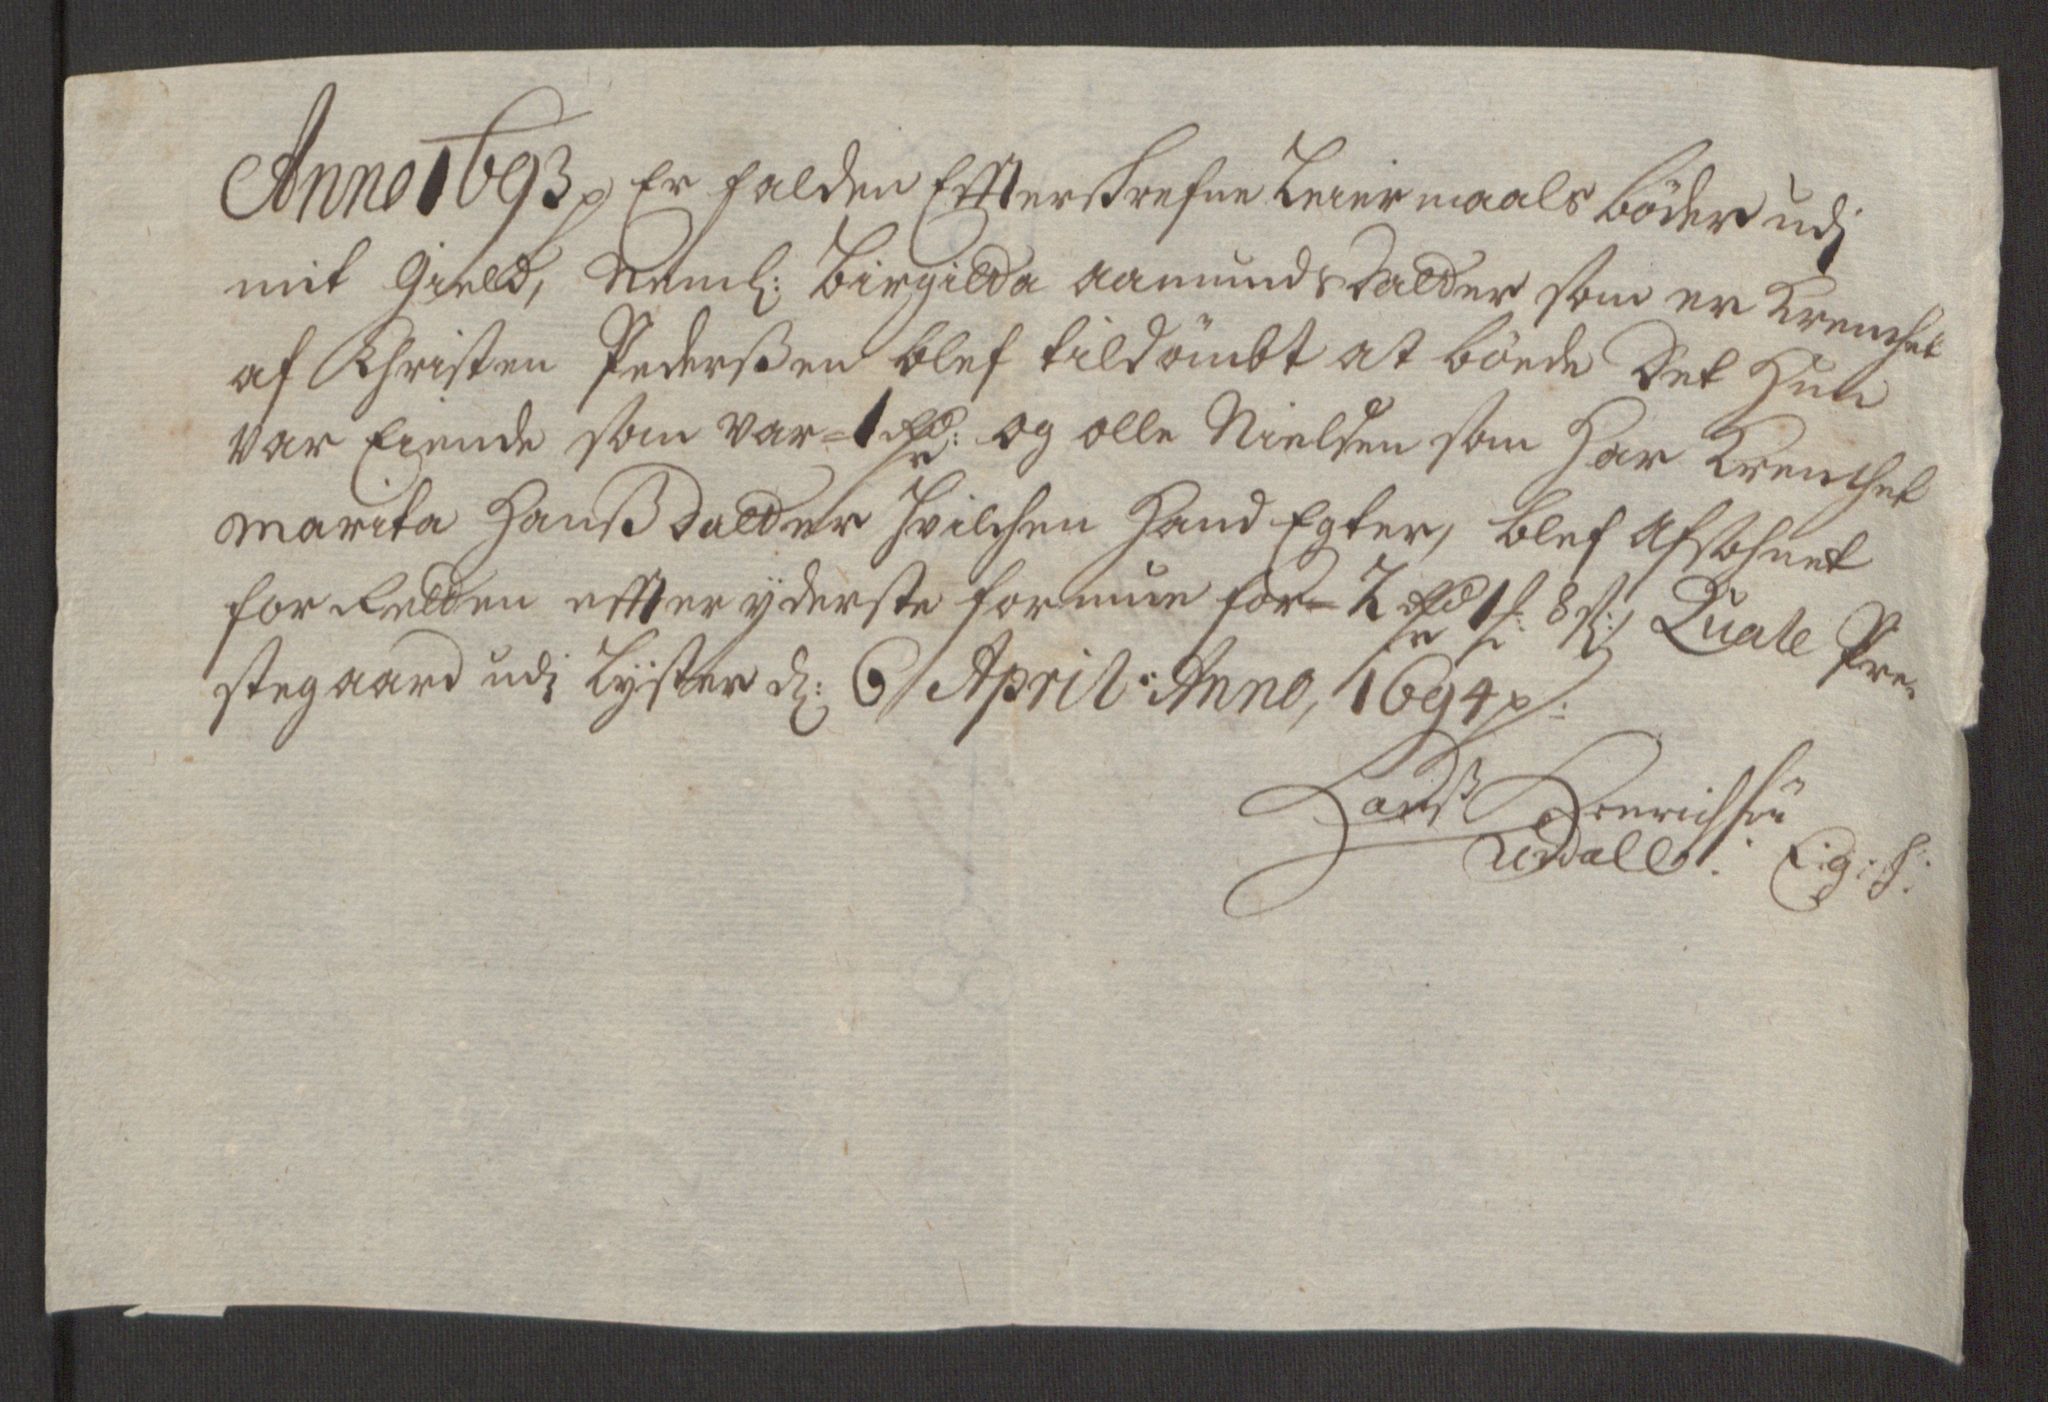 Anno 1693 p Er falden Effterskrefne Leiermaals böder udj
mit Gield, Neml: Birgilda Aamunds Datter som er Krenchet
af Christen Pederßen blef tildömbt at böede det Hun
var Eiende som var = 1 Rdr: og olle Nielsen som Har Krenchet
Marita Hanß Datter Hvilchen Hand Egter, blef Afsohnet
for Retten effter yderste formue for = 2 Rdr 1 ß: Quale Pre-
stegaard udj Lyster d: 6 April: Anno, 1694 p:
Hanß Henrichsøn
Uddall E: g: H: